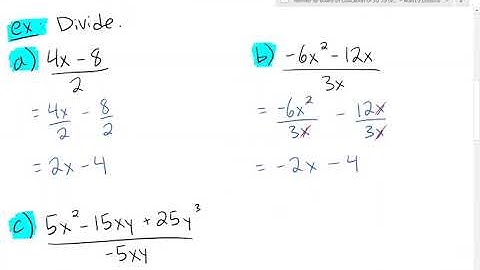 ex: Divide.
a) (4x - 8)/2
= 4x/2 - 8/2
= 2x - 4
b) (-6x² - 12x)/3x
= -6x²/3x - 12x/3x
= -2x - 4
c) (5x² - 15xy + 25y³)/-5xy